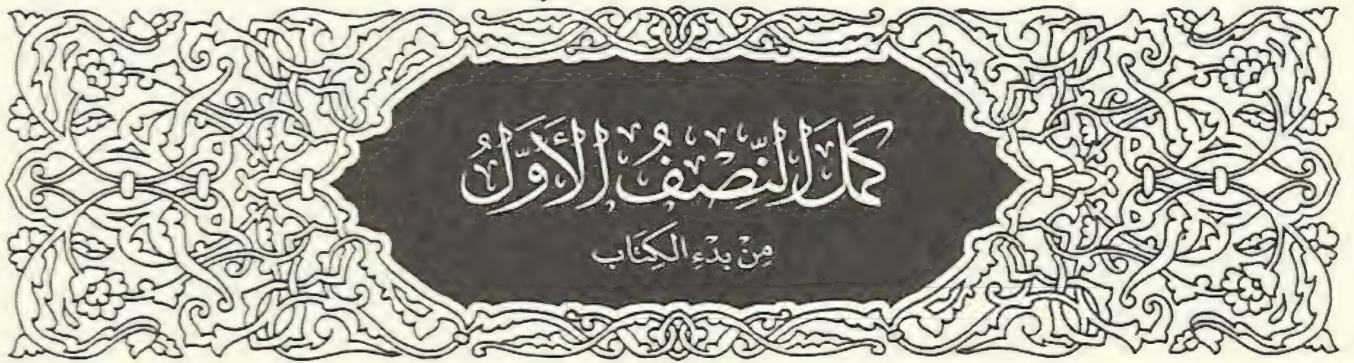 كَمَلَ النِّصْفُ الْأَوَّلُ
مِنْ بَدْءِ الْكِتَابِ